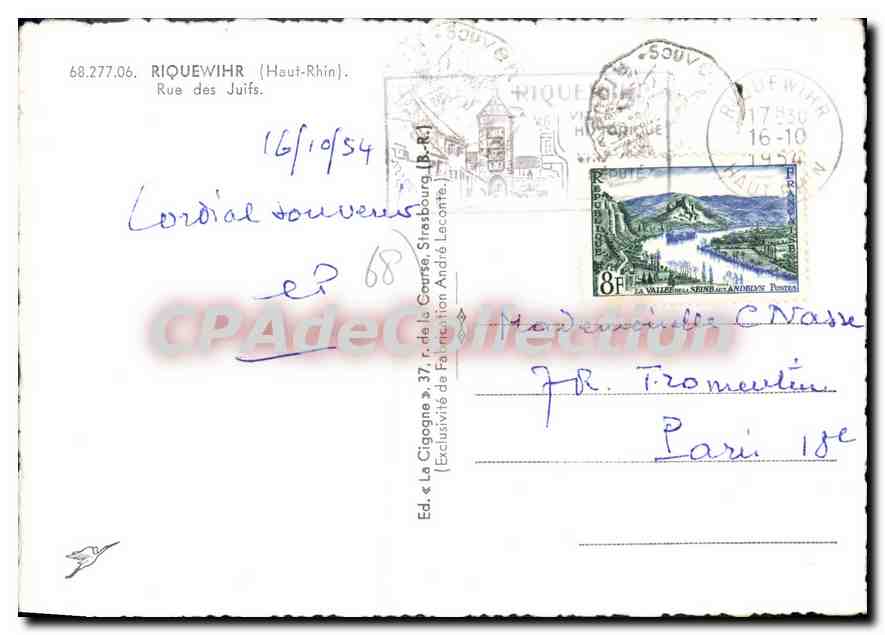 68.277.06. RIQUEWIHR (Haut-Rhin).
Rue des Juifs.
16/10/54
Cordial souvenir
68
Ed. « La Cigogne », 37, r. de la Course, Strasbourg (B.-R.)
(Exclusivité de Fabrication André Leconte.)
RIQUEWIHR
HISTORIQUE
RIQUEWIHR
17H30
16-10
1954
HAUT-RHIN
REPUBLIQUE
FRANÇAISE
8F
LA VALLÉE DE LA SEINE AUX ANDELYS POSTES
Mademoiselle C Nasse
7 R. Fromentin
Paris 18e
CPAdeCollection